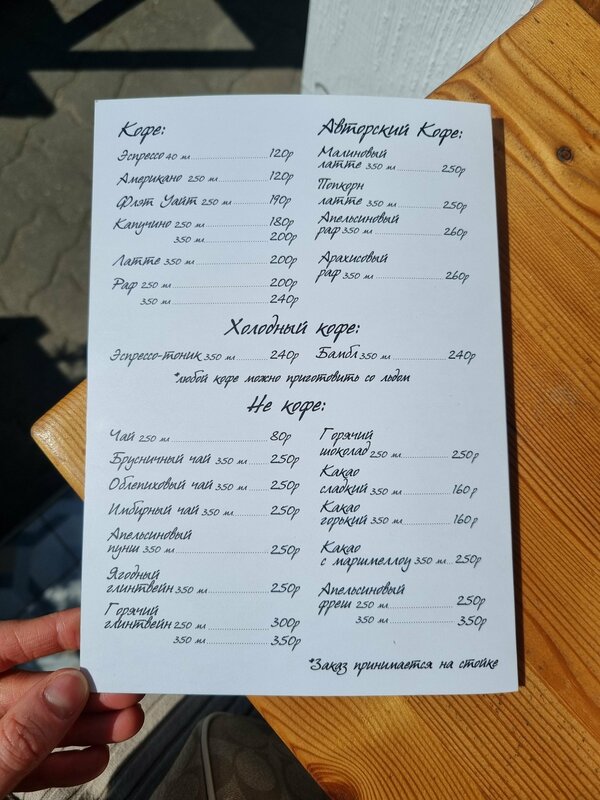 Кофе:
Эспрессо 40 мл 120р
Американо 250 мл 120р
Флэт Уайт 250 мл 190р
Капучино 250 мл 180р
350 мл 200р
Латте 350 мл 200р
Раф 250 мл 200р
350 мл 240р
Авторский Кофе:
Малиновый
латте 350 мл 250р
Попкорн
латте 350 мл 250р
Апельсиновый
раф 350 мл 260р
Арахисовый
раф 350 мл 260р
Холодный кофе:
Эспрессо-тоник 350 мл 240р
Бамбл 350 мл 240р
*любой кофе можно приготовить со льдом
Не кофе:
Чай 250 мл 80р
Брусничный чай 350 мл 250р
Облепиховый чай 350 мл 250р
Имбирный чай 350 мл 250р
Апельсиновый
пунш 350 мл 250р
Ягодный
глинтвейн 350 мл 250р
Горячий
глинтвейн 250 мл 300р
350 мл 350р
Горячий
шоколад 250 мл 250р
Какао
сладкий 350 мл 160р
Какао
горький 350 мл 160р
Какао
с маршмеллоу 350 мл 250р
Апельсиновый
фреш 250 мл 250р
350 мл 350р
*Заказ принимается на стойке